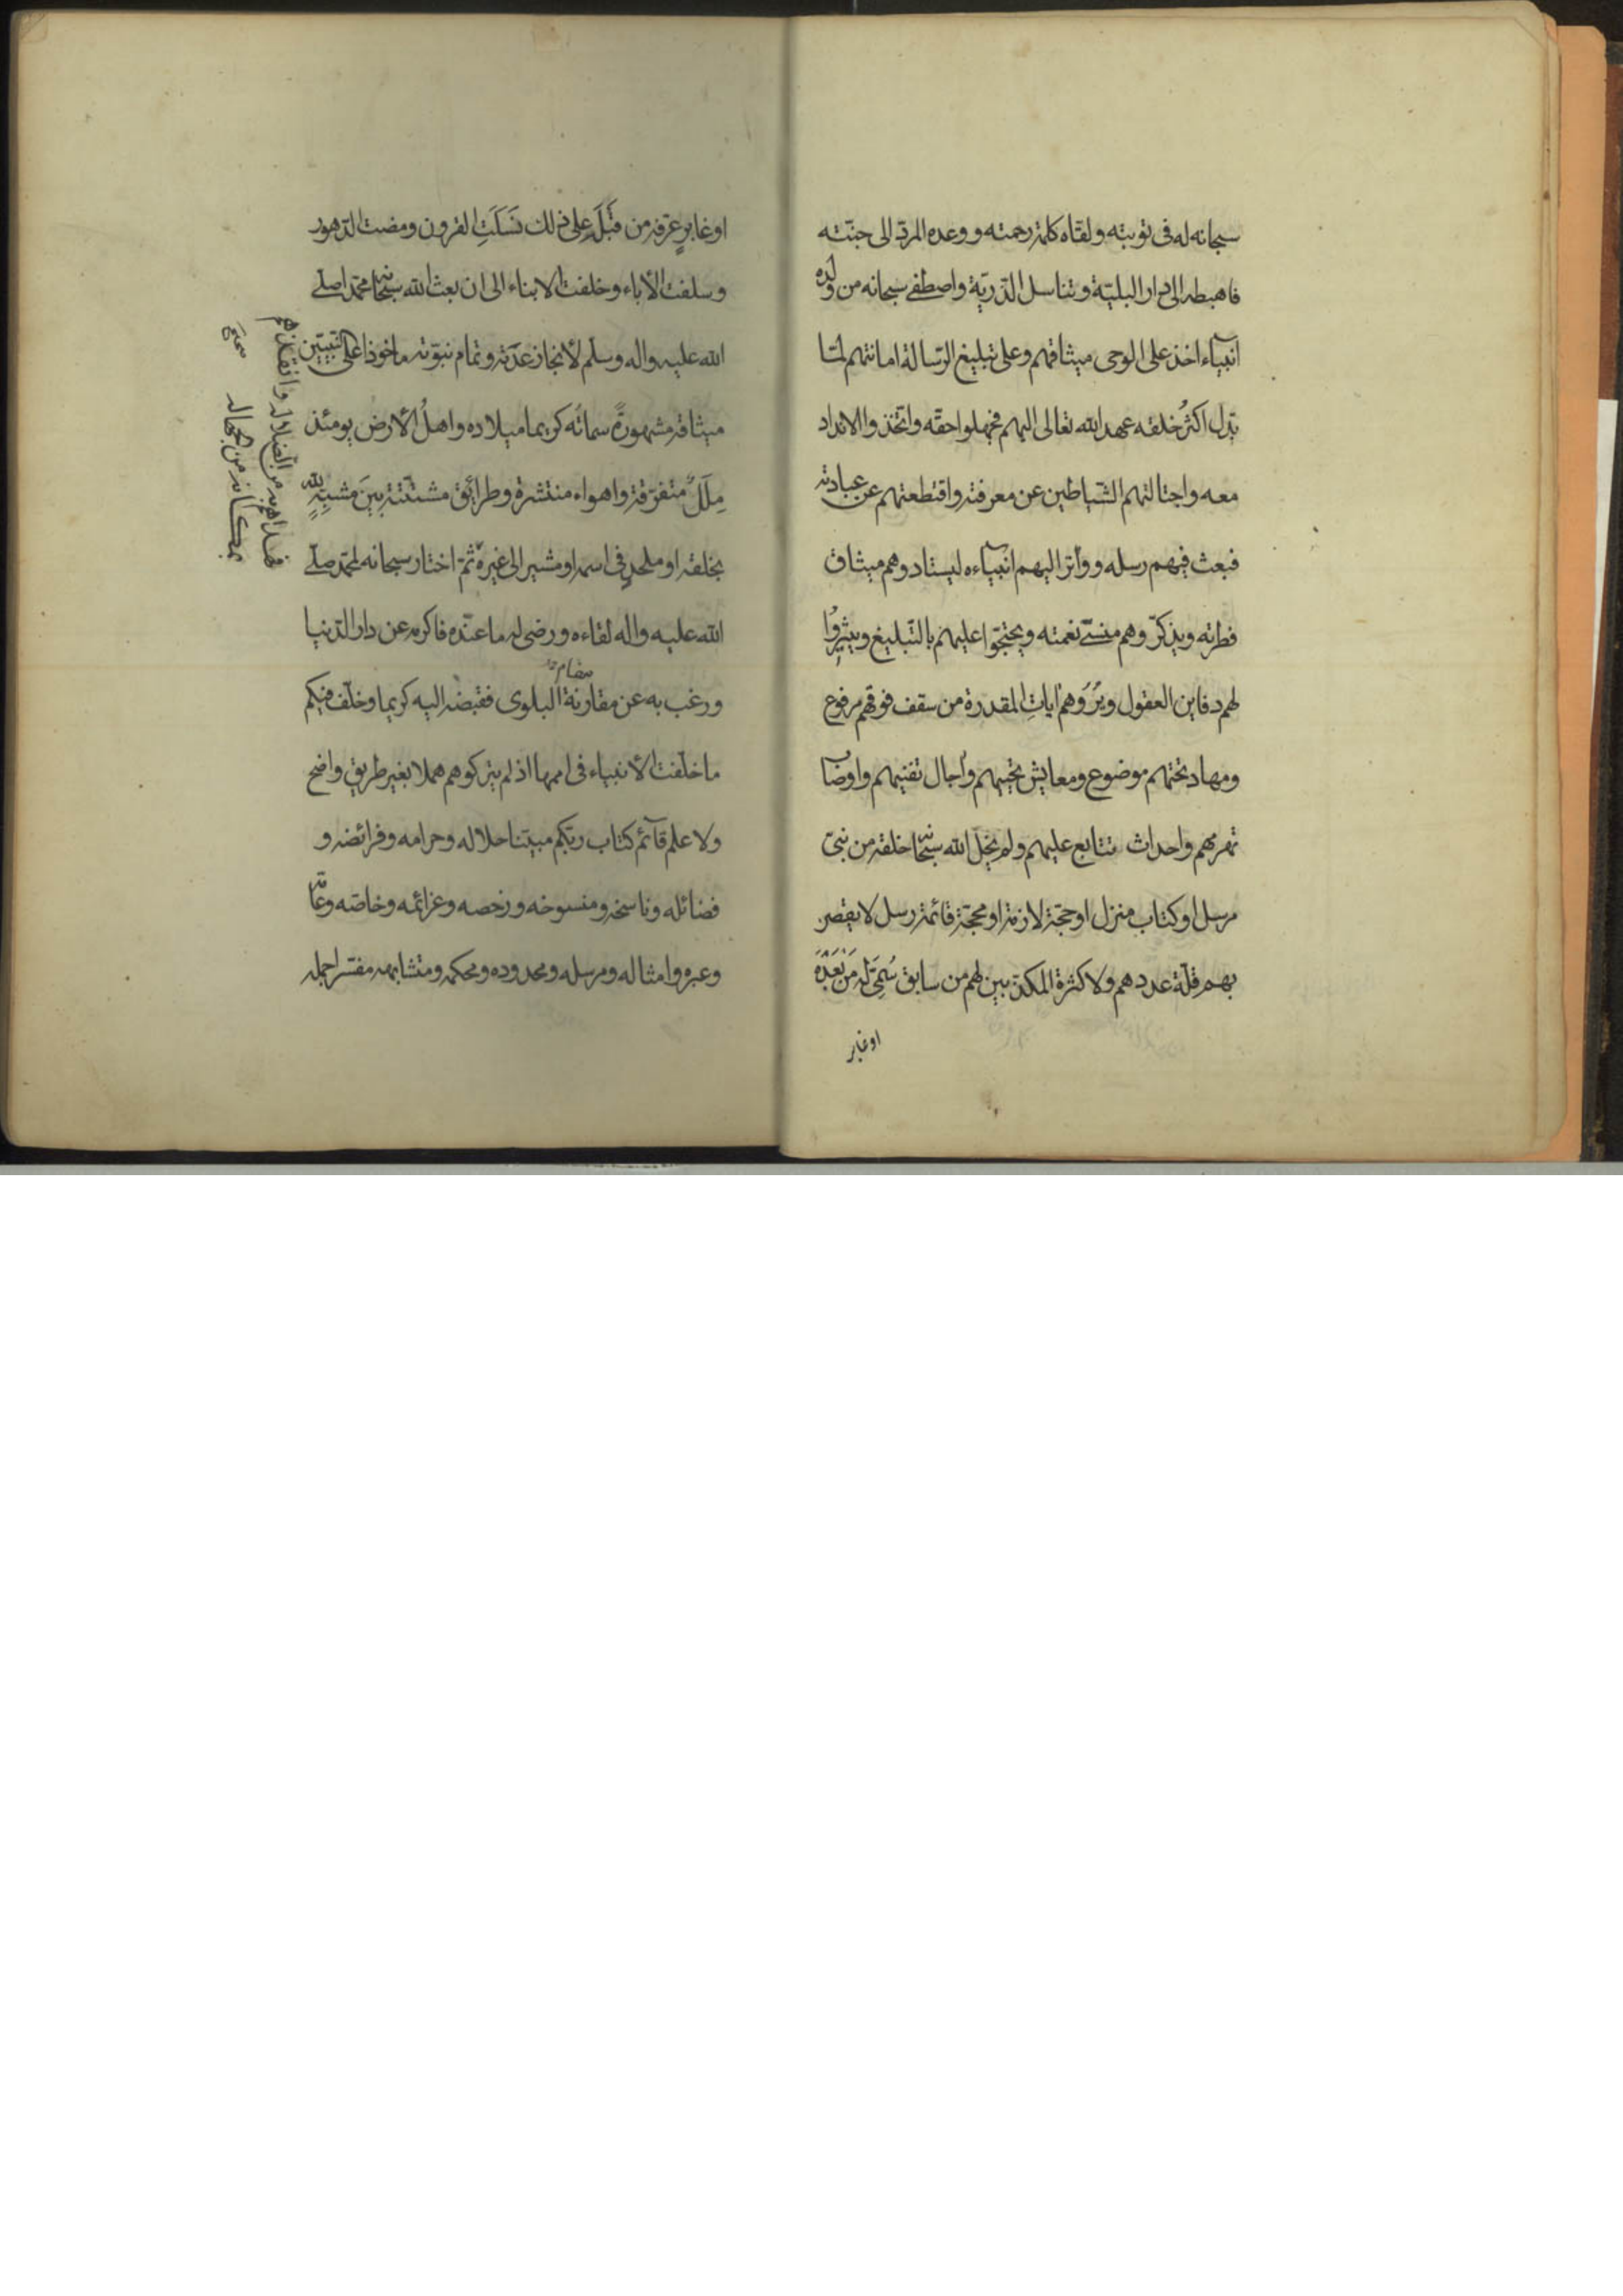 سبحانه له فى توبته ولقاه كلمة رحمته ووعده المردّ الى جنّته
فاهبطه الى دار البليّة وتناسل الذّريّة واصطفى سبحانه من ولده
انبياء اخذ على الوحى ميثاقهم وعلى تبليغ الرّسالة امانتهم لمّا
بدّل اكثرُ خلقه عهد الله تعالى اليهم فجهلوا حقّه واتّخذوا الانداد
معه واجتالتهم الشّياطين عن معرفته واقتطعتهم عن عبادته
فبعث فيهم رسله وواتر اليهم انبياءه ليستادوهم ميثاق
فطرته ويذكّروهم منسىّ نعمته ويحتجّوا عليهم بالتّبليغ ويثيرُوا
لهم دفاين العقول ويُرَوهم اياتِ المقدرة من سقف فوقهم مرفوع
ومهاد تحتهم موضوع ومعايش تحييهم واجال تفنيهم واوصاب
تهرمهم واحداث تتابع عليهم ولم يخل الله سبحانه خلقه من نبىّ
مرسل او كتاب منزل او حجّة لازمة او محجّة قائمة رسل لا يقصر
بهم قلّة عددهم ولا كثرة المكذّبين لهم من سابق سُمِّىَ له مَن بَعدَهُ
او غابر
او غابرٍ عرّفه من قَبلَه على ذلك نَسَلَتِ القرون ومضت الدّهور
وسلفت الأباء وخلفت الابناء الى ان بعث الله سبحانه محمّدا صلّى
الله عليه واله وسلّم لأنجاز عدَته وتمام نبوّته ماخوذا على النّبيّين
ميثاقه مشهورةً سماتُه كريما ميلاده واهلُ الأرض يومئذ
مِلَلٌ متفرّقة واهواء منتشرة وطرائق مشتّتة بينَ مشبِّهٍ لله
بخلقه او ملحدٍ فى اسمه او مشير الى غيره ثمّ اختار سبحانه لمحمّد صلّى
فهداهم به من الضلالة وانقذهم
بمكانه من الجهالة
صحّ
الله عليه واله لقاءه ورضى له ما عنده فاكرمه عن دار الدّنيا
مقام
ورغب به عن مقارنة البلوى فقبضه اليه كريما وخلّف فيكم
ما خلّفت الأنبياء فى اممها اذ لم يتركوهم هملا بغير طريق واضح
ولا علم قآئم كتاب ربّكم مبيّنا حلاله وحرامه وفرائضه و
فضائله وناسخه ومنسوخه ورخصه وعزائمه وخاصّه وعامّه
وعبره وامثاله ومرسله ومحدوده ومحكمه ومتشابهه مفسّرا جمله